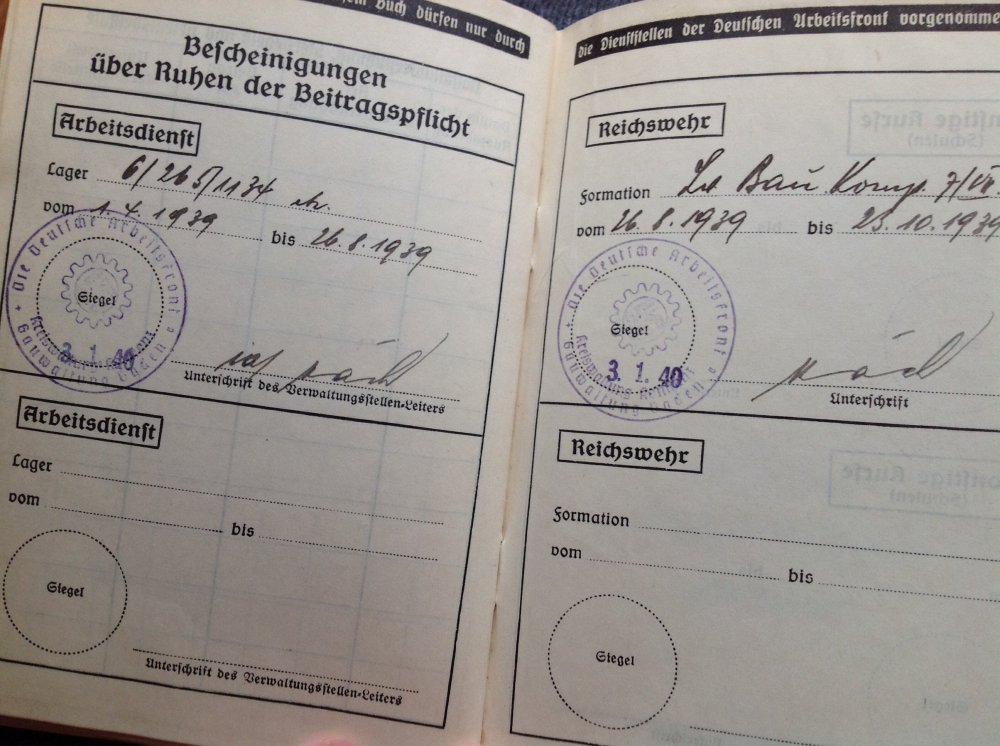 em Buch dürfen nur durch
Bescheinigungen
über Ruhen der Beitragspflicht
Arbeitsdienst
Lager 6/265/1134
vom 1.4.1939 bis 26.8.1939
Die Deutsche Arbeitsfront
Gauwaltung Baden
Siegel
3. 1. 40
Unterschrift des Verwaltungsstellen-Leiters
Arbeitsdienst
Lager
vom
bis
Siegel
Unterschrift des Verwaltungsstellen-Leiters
die Dienststellen der Deutschen Arbeitsfront vorgenomme
Reichswehr
Formation Bau Komp. 7/VII
vom 26.8.1939 bis 23.10.1939
Die Deutsche Arbeitsfront
Gauwaltung Baden
Siegel
3. 1. 40
Unterschrift
Reichswehr
Formation
vom
bis
Siegel